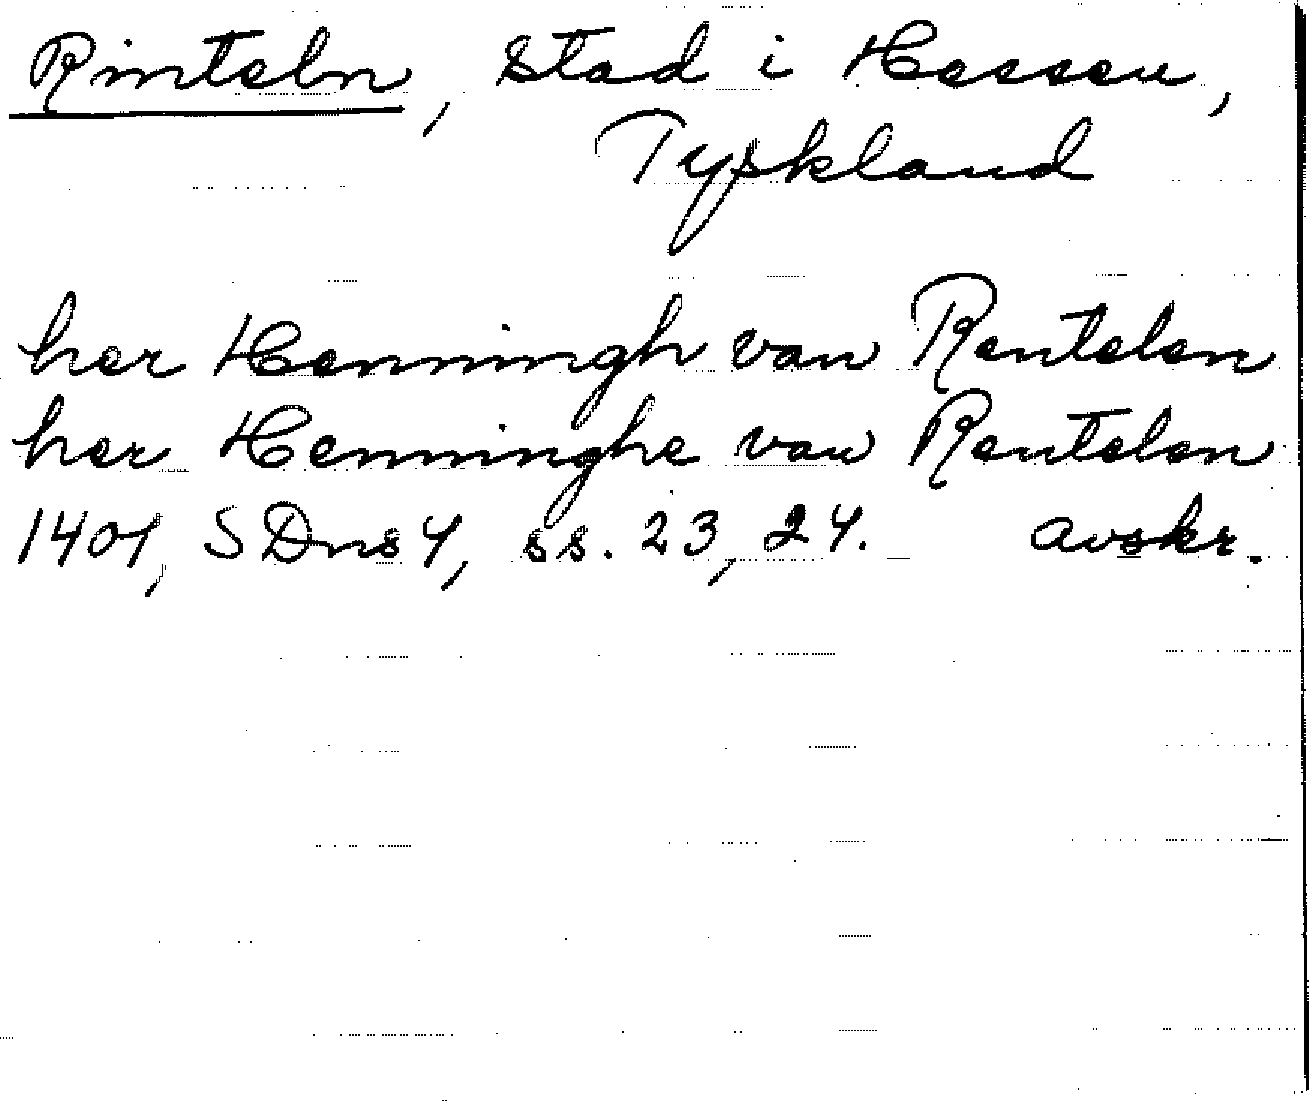 Rinteln, Stad i Hessen,
Tyskland
her Henningh van Rentelen
her Henninghe van Rentelen
1401, SDns 1, ss. 23, 24. avskr.